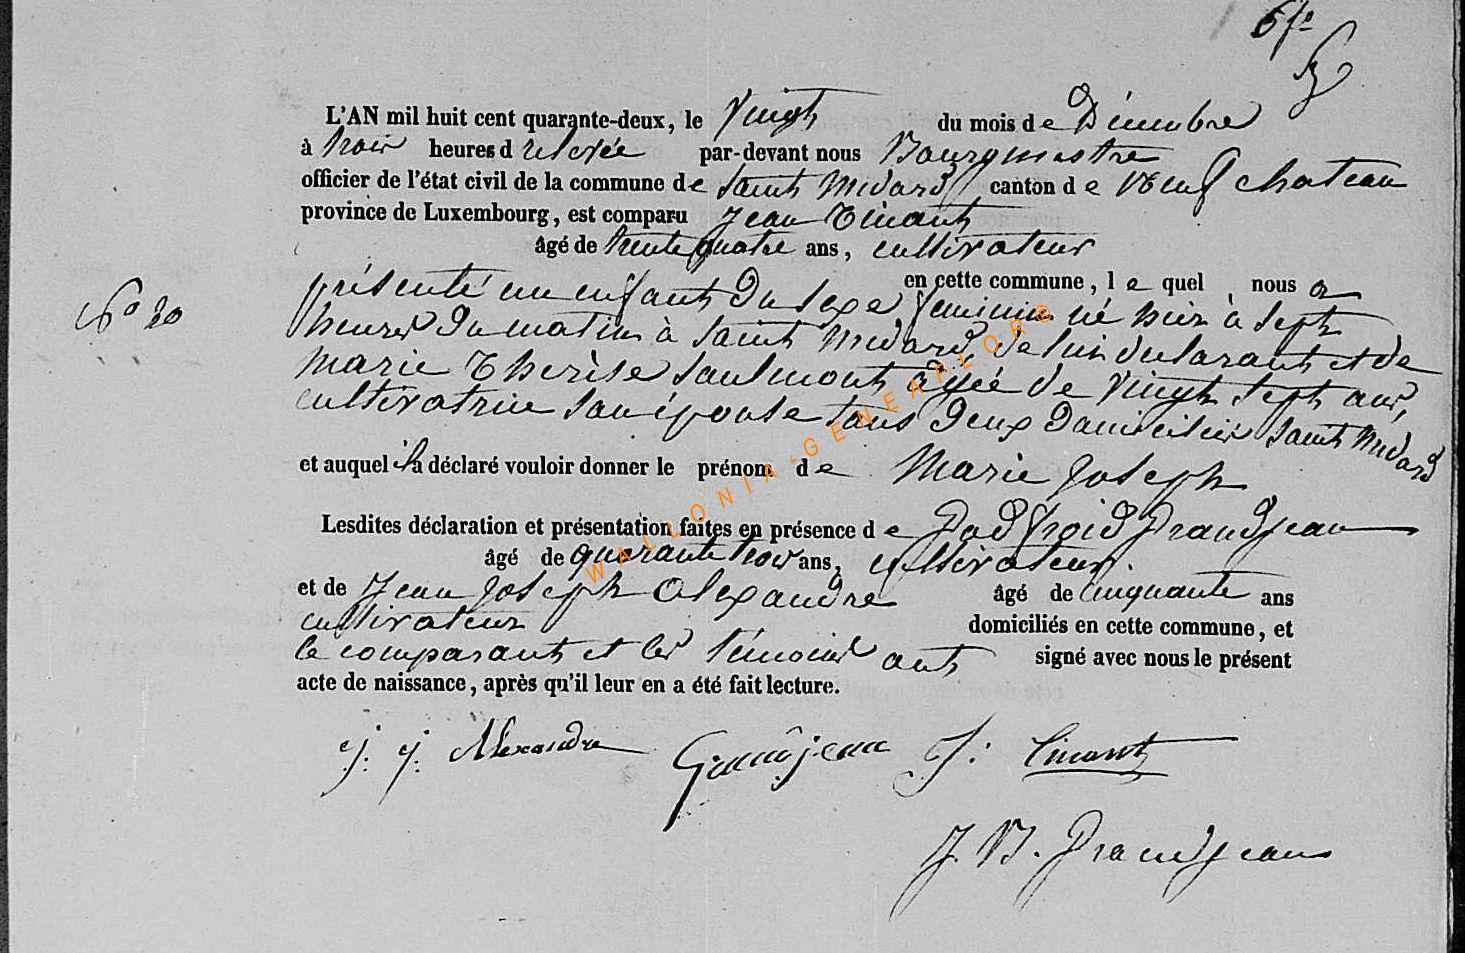 L'AN mil huit cent quarante-deux, le Vingt du mois de Décembre
à trois heures d relevée par-devant nous Bourgmestre
officier de l'état civil de la commune de Saint Médard canton de Neufchateau
province de Luxembourg, est comparu Jean Tinant
âgé de trente quatre ans, cultivateur
en cette commune, lequel nous a
N° 20
présenté un enfant du sexe feminin né hier à Sept
heures du matin à Saint Médard, de lui déclarant et de
Marie Thérèse Saulmont âgée de Vingt Sept ans,
cultivatrice son épouse tous deux domiciliés Saint Médard
et auquel il a déclaré vouloir donner le prénom de Marie Joseph
Lesdites déclaration et présentation faites en présence de Godfroid Grandjean
âgé de quarante trois ans, cultivateur.
et de Jean Joseph Alexandre âgé de cinquante ans
cultivateur domiciliés en cette commune, et
le comparant et les témoins ont signé avec nous le présent
acte de naissance, après qu'il leur en a été fait lecture.
j. j. Alexandre Grandjean J. Tinant
J. B. Grandjean
WALLONIA-GENEAFLORE